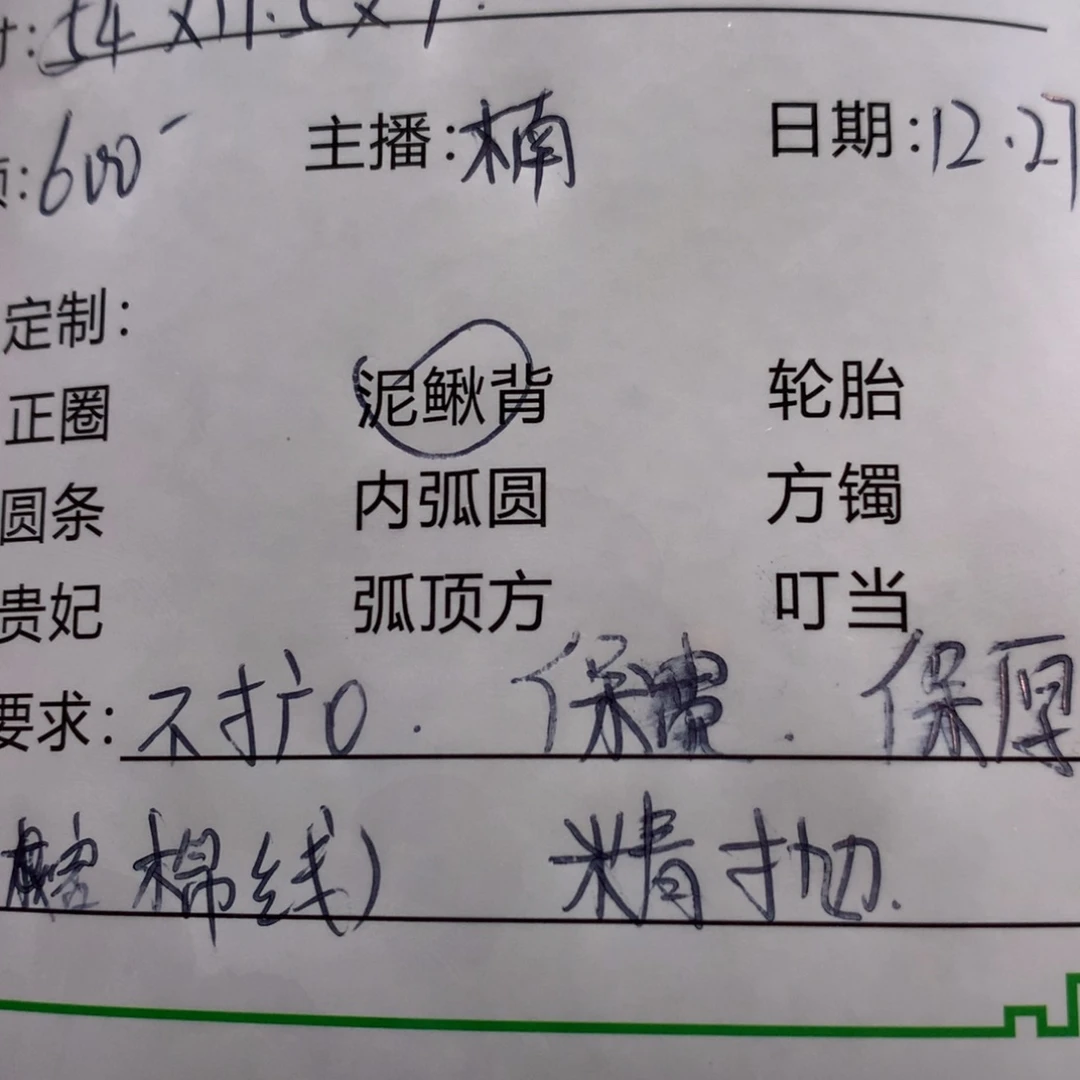 寸: 54×11.5×7.
页: 600- 主播: 楠 日期: 12.27
定制:
正圈 泥鳅背 轮胎
圆条 内弧圆 方镯
贵妃 弧顶方 叮当
要求: 不扩口. 保宽. 保厚
棉线) 精抛.